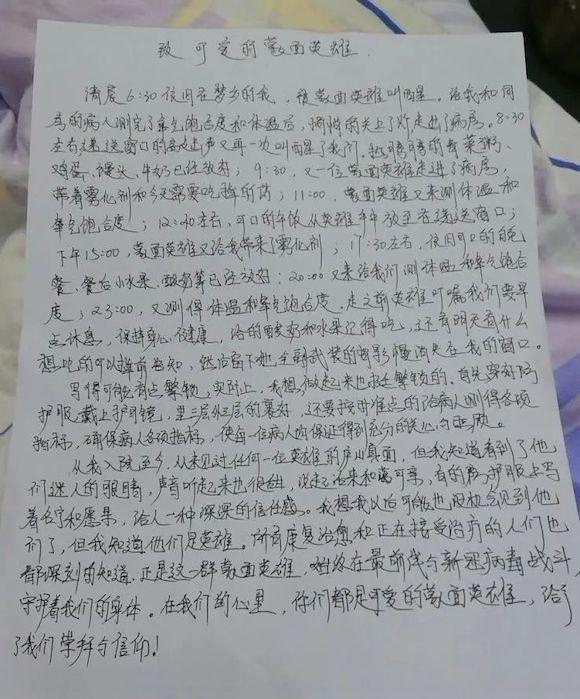 致可爱的蒙面英雄.
清晨6:30依旧在梦乡的我，被蒙面英雄叫醒。给我和同
房的病人测完了氧气饱合度和体温后，悄悄的关上了灯走出了病房。8:30
左右递送窗口的音乐声又再一次叫醒了我们，热腾腾的青菜粥、
鸡蛋、馒头、牛奶已经放好；9:30，又一位蒙面英雄走进了病房，
带着雾化剂和今天需要吃的药；11:00，蒙面英雄又来测体温和
氧气饱合度；12:00左右，可口的午饭从英雄手中放至递送窗口；
下午15:00，蒙面英雄又给我带来了雾化剂；17:30左右，依旧可口的晚
餐、餐后小水果、酸奶等已经放好；20:00又来给我们测体温和氧气饱合
度；23:00，又测得体温和氧气饱合度，走之前英雄叮嘱我们要早
点休息，保持身心健康，给的酸奶和水果记得吃，还有明天有什么
想吃的可以提前告知，然后留下她全副武装的背影慢慢消失在我的窗口。
写得可能有点繁物，实际上，我想做起来也是繁锁的。首先穿好防
护服，戴上护目镜，里三层外三层的裹好，还要按时准点的给病人测得各项
指标，确保病人各项指标，使每一位病人的保证得到充分的关心与照顾。
从我入院至今，从未见过任何一位英雄的庐山真面，但我知道看到了他
们迷人的眼睛，声音听起来也很甜，说起话来和蔼可亲，有的防护服上写
着名字和愿景，给人一种深深的信任感。我想我以后可能也没机会见到他
们了，但我知道他们是英雄。所有康复治愈和正在接受治疗的人们也
都深刻的知道，正是这一群蒙面英雄，始终在最前线与新冠病毒战斗，
守护着我们的身体。在我们的心里，你们都是可爱的蒙面英雄，给予
了我们崇拜与信仰！